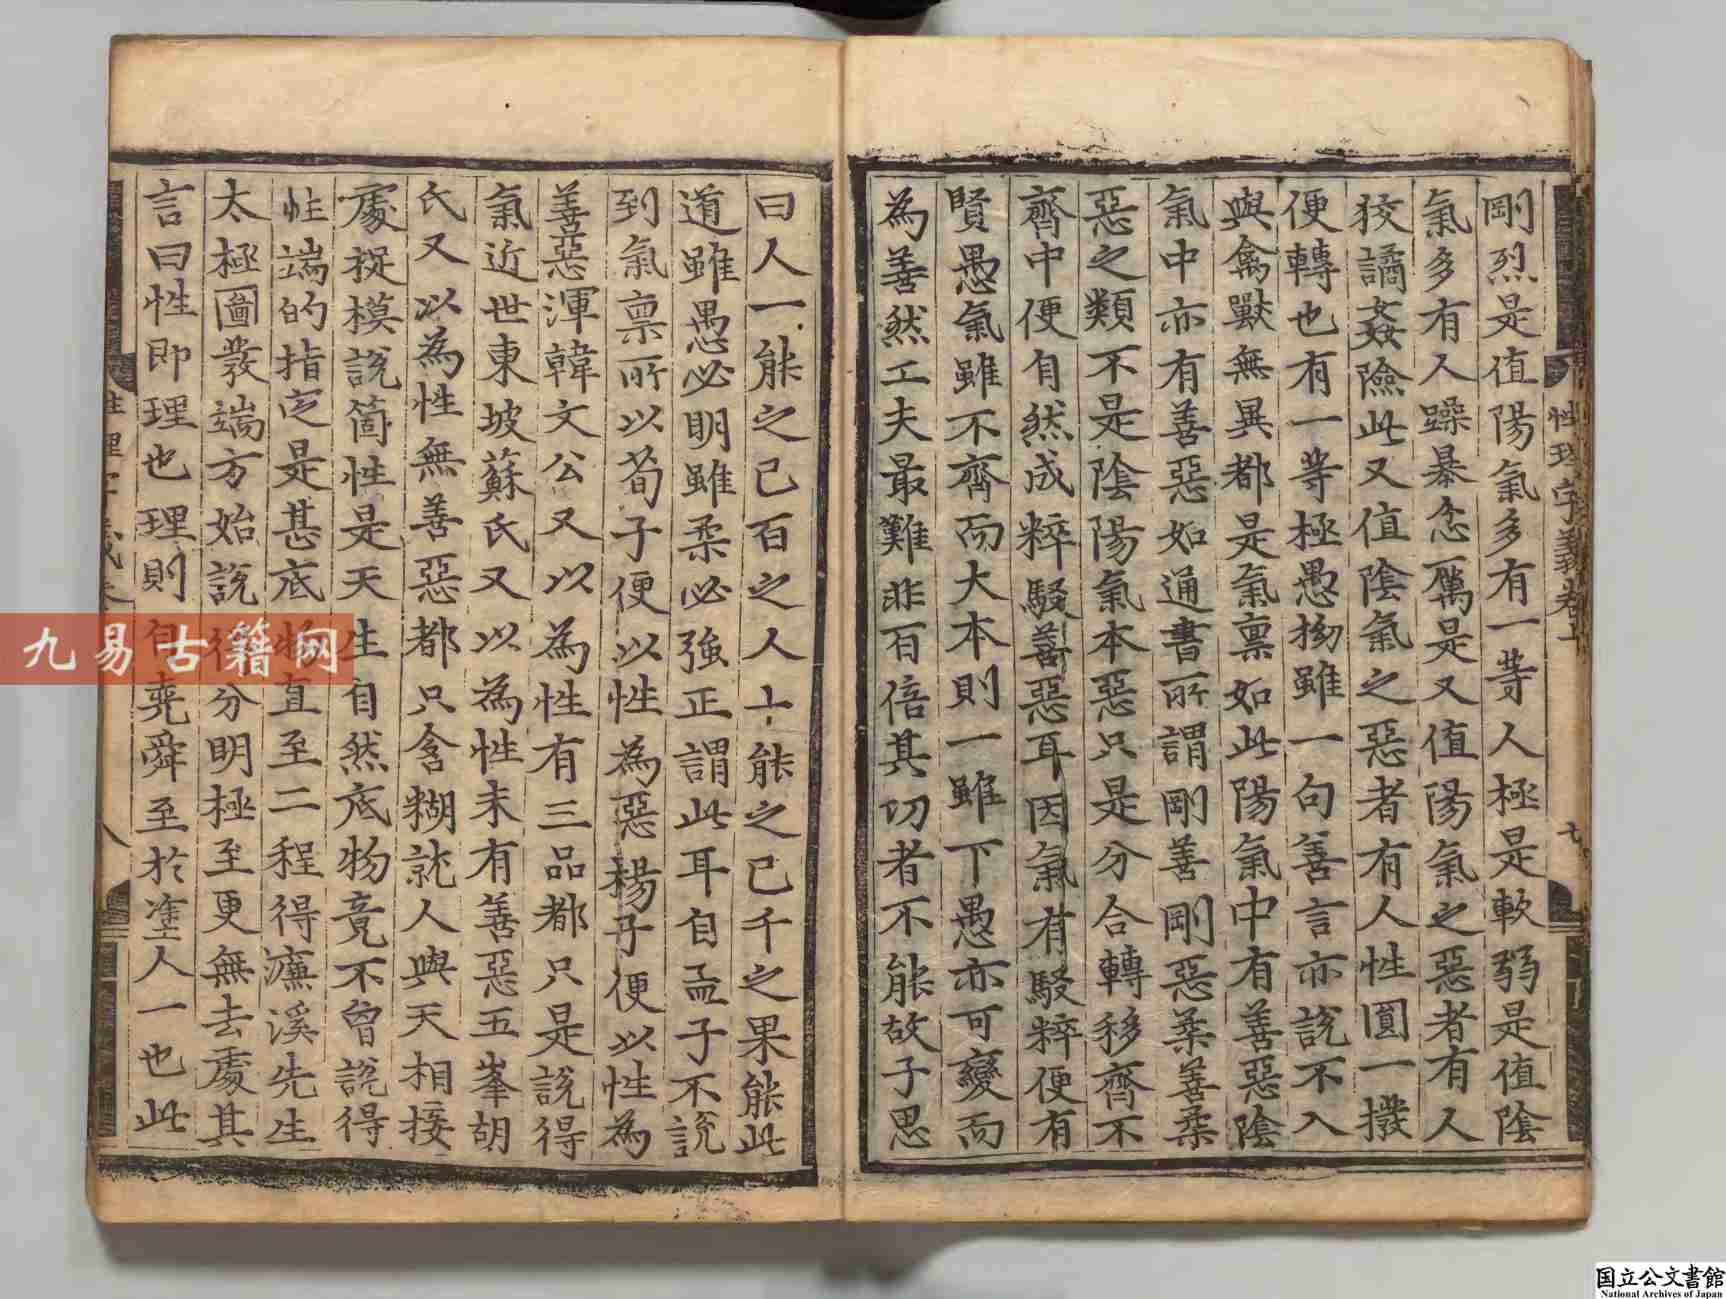 剛烈是值陽氣多有一等人極是軟弱是值陰
氣多有人躁暴忿厲是又值陽氣之惡者有人
狡譎姦險此又值陰氣之惡者有人性圓一撥
便轉也有一等極愚拗雖一句善言亦說不入
與禽獸無異都是氣稟如此陽氣中有善惡陰
氣中亦有善惡如通書所謂剛善剛惡柔善柔
惡之類不是陰陽氣本惡只是分合轉移齊不
齊中便自然成粹駁善惡耳因氣有駁粹便有
賢愚氣雖不齊而大本則一雖下愚亦可變而
為善然工夫最難非百倍其功者不能故子思
性理字義卷上
七
曰人一能之己百之人十能之己千之果能此
道雖愚必明雖柔必強正謂此耳自孟子不說
到氣稟所以荀子便以性為惡楊子便以性為
善惡渾韓文公又以為性有三品都只是說得
氣近世東坡蘇氏又以為性未有善惡五峯胡
氏又以為性無善惡都只含糊就人與天相接
處捉模說箇性是天生自然底物竟不曾說得
性端的指定是甚底物直至二程得濂溪先生
太極圖發端方始說得分明極至更無去處其
言曰性即理也理則自堯舜至於塗人一也此
八
九易古籍网
国立公文書館
National Archives of Japan